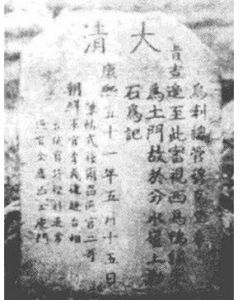 大清
烏利總管穆克登
旨查邊至此審視西爲鴨綠
爲土門故於分水嶺上
石爲記
康熙五十一年五月十五日
筆帖式蘇爾昌通官二哥
朝鮮軍官李義復趙台相
差使官許樑朴道常
通官金應 金慶門